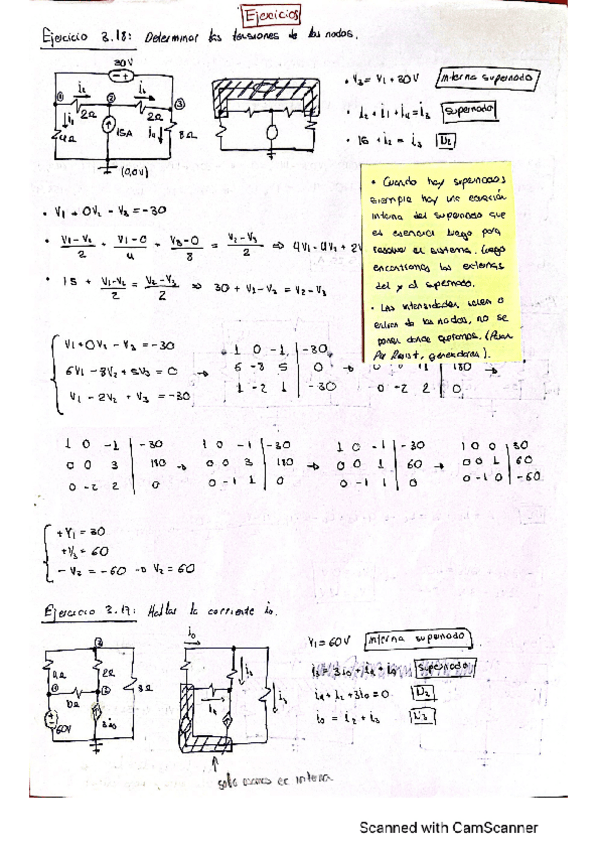 Ejercicios
Ejercicio 3.18: Determinar las tensiones de los nodos.
30V
i₂ i₃
2Ω 2Ω
i₁ 15A i₄ 8Ω
4Ω
(0,0V)
• V₃ = V₁ + 30V interna supernodo
• i₂ + i₁ + i₄ = i₃ supernodo
• 15 + i₂ = i₃ N₂
• Cuando hay supernodos
siempre hay una ecuación
interna del supernodo que
es esencial luego para
resolver el sistema. Luego
encontramos las externas
del y al supernodo.
• Las intensidades salen o
entran de los nodos, no se
ponen donde queramos.
• V₁ + 0V₂ - V₃ = -30
• (V₁-V₂)/2 + (V₁-0)/4 + (V₃-0)/8 = (V₂-V₃)/2 ⇒ 4V₁ - 4V₂ + 2V
• 15 + (V₁-V₂)/2 = (V₂-V₃)/2 ⇒ 30 + V₁ - V₂ = V₂ - V₃
V₁ + 0V₂ - V₃ = -30
6V₁ - 8V₂ + 5V₃ = 0 →
V₁ - 2V₂ + V₃ = -30
1 0 -1 | -30
6 -8 5 | 0 →
1 -2 1 | -30
180 →
0 -2 2 | 0
1 0 -1 | -30
0 0 3 | 180 →
0 -2 2 | 0
1 0 -1 | -30
0 0 3 | 180 →
0 -1 1 | 0
1 0 -1 | -30
0 0 1 | 60 →
0 -1 1 | 0
1 0 0 | 30
0 0 1 | 60
0 -1 0 | -60
+V₁ = 30
+V₃ = 60
-V₂ = -60 → V₂ = 60
Ejercicio 3.17: Hallar la corriente i₀.
2Ω 8Ω
60V 3i₀
i₀
i₁ i₃
i₂
V₁ = 60V interna supernodo
supernodo
i₁ + i₂ + 3i₀ = 0 N₂
i₀ = i₂ + i₃ N₃
Scanned with CamScanner